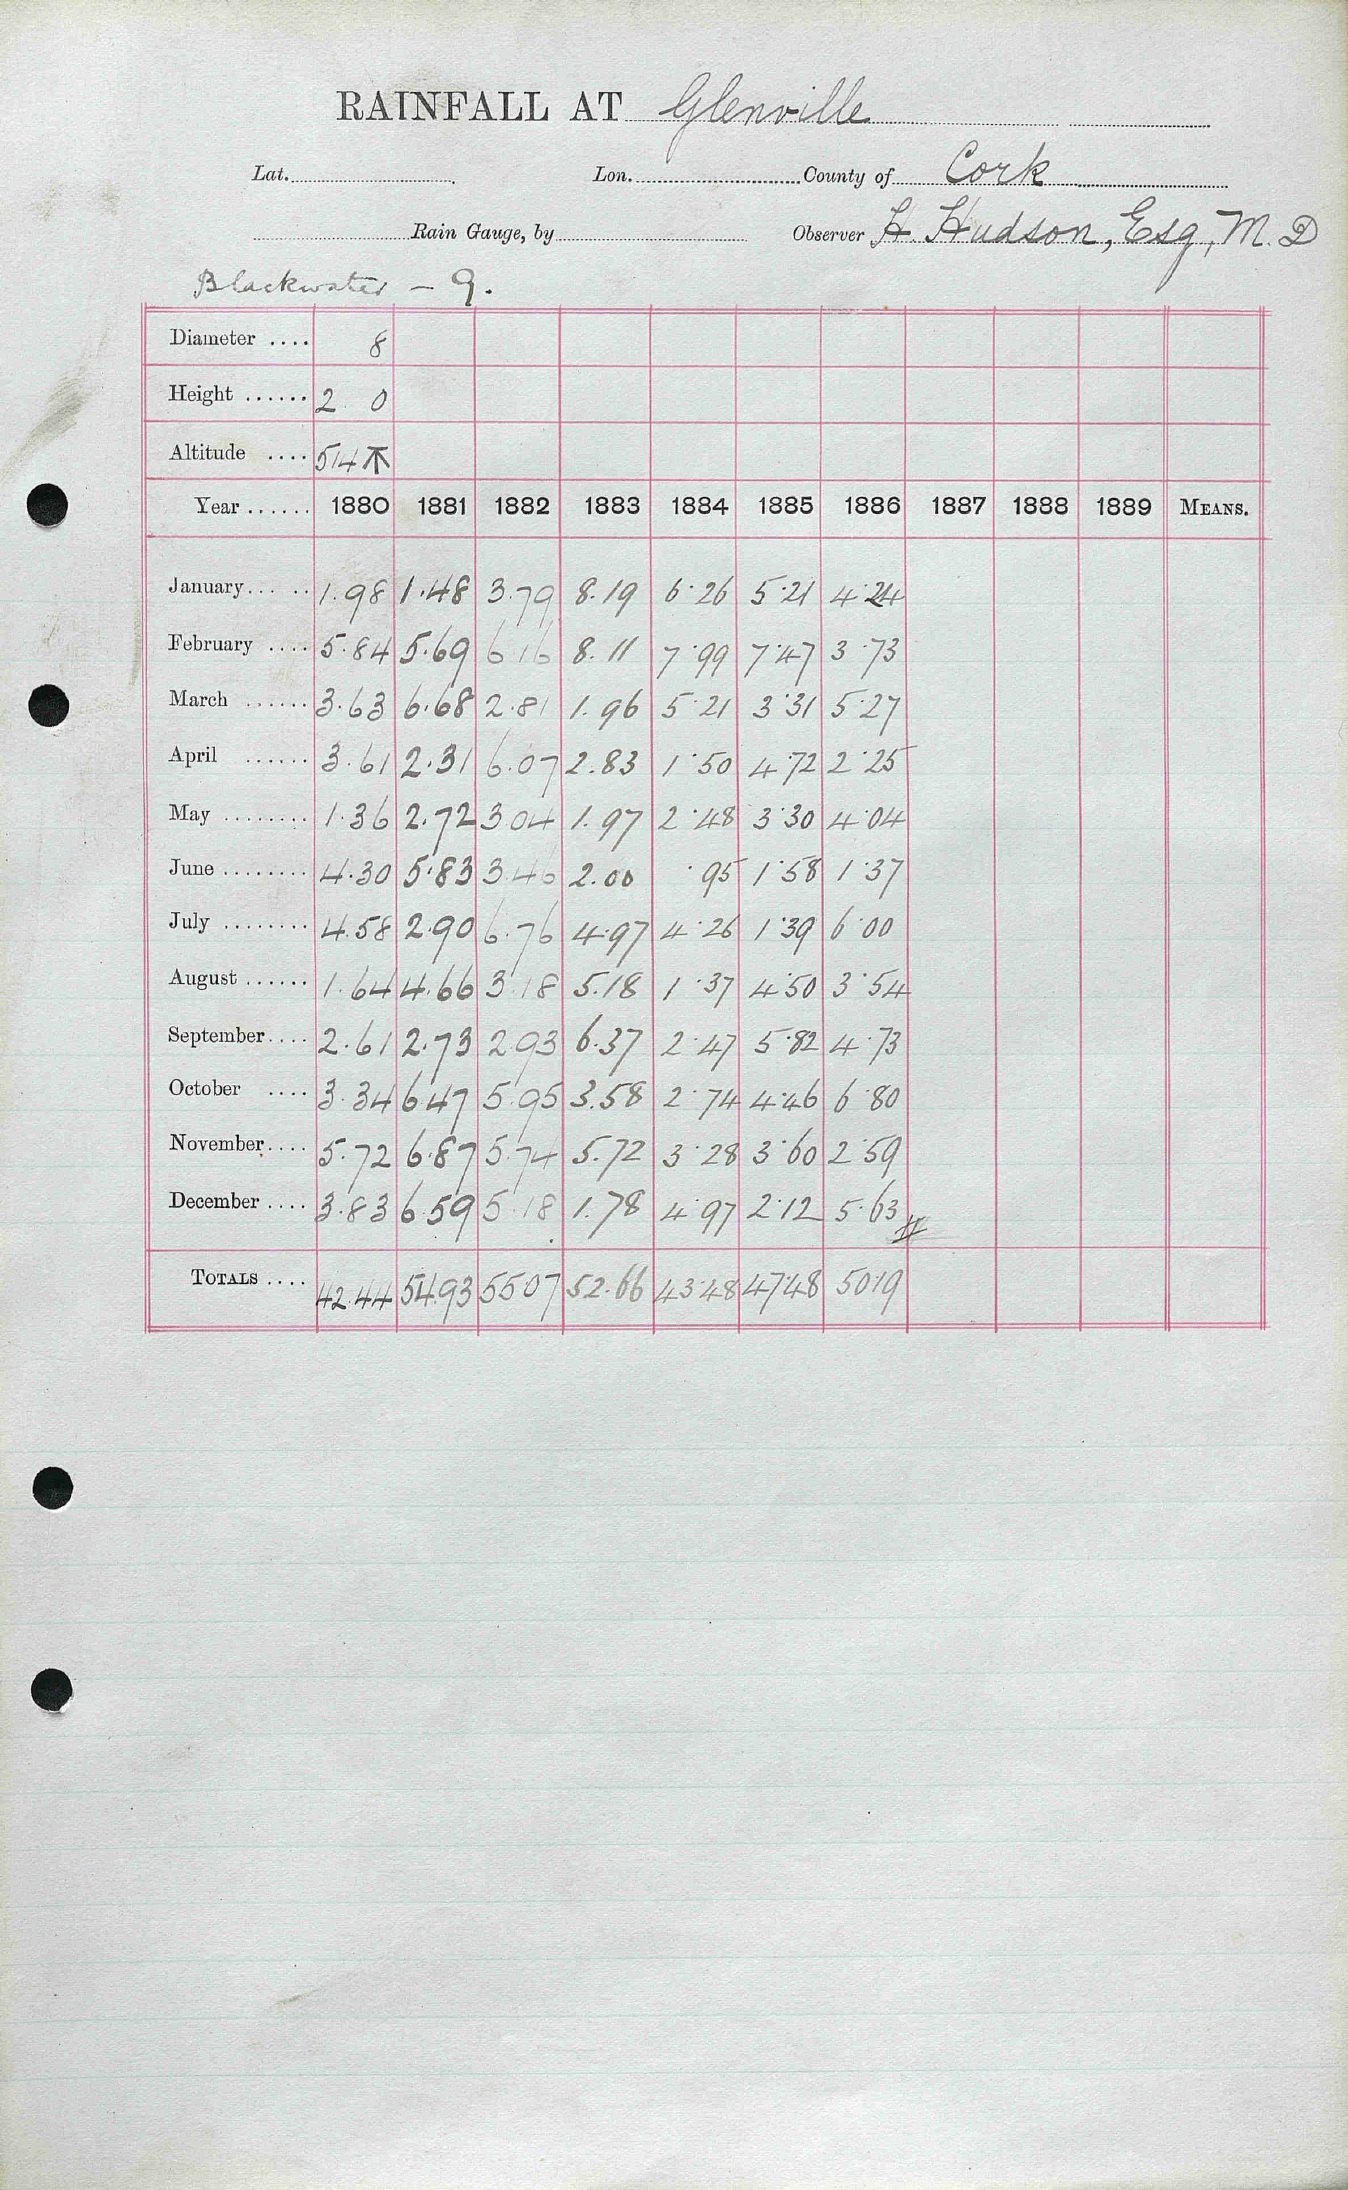 RAINFALL AT Glenville
Lat. Lon. County of Cork
Rain Gauge, by Observer H Hudson, Esq, M.D
Blackwater – 9.
Diameter .... 8
Height ...... 2 0
Altitude .... 514
Year ...... 1880 1881 1882 1883 1884 1885 1886 1887 1888 1889 MEANS.
January..... 1.98 1.48 3.79 8.19 6.26 5.21 4.24
February .... 5.84 5.69 6.16 8.11 7.99 7.47 3.73
March ...... 3.63 6.68 2.81 1.96 5.21 3.31 5.27
April ...... 3.61 2.31 6.07 2.83 1.50 4.72 2.25
May ........ 1.36 2.72 3.04 1.97 2.48 3.30 4.04
June ........ 4.30 5.83 3.46 2.00 .95 1.58 1.37
July ........ 4.58 2.90 6.76 4.97 4.26 1.39 6.00
August ...... 1.64 4.66 3.18 5.18 1.37 4.50 3.54
September.... 2.61 2.73 2.93 6.37 2.47 5.82 4.73
October .... 3.34 6.47 5.95 3.58 2.74 4.46 6.80
November.... 5.72 6.87 5.74 5.72 3.28 3.60 2.59
December .... 3.83 6.59 5.18 1.78 4.97 2.12 5.63
TOTALS .... 42.44 54.93 55 07 52.66 43.48 47.48 50.19